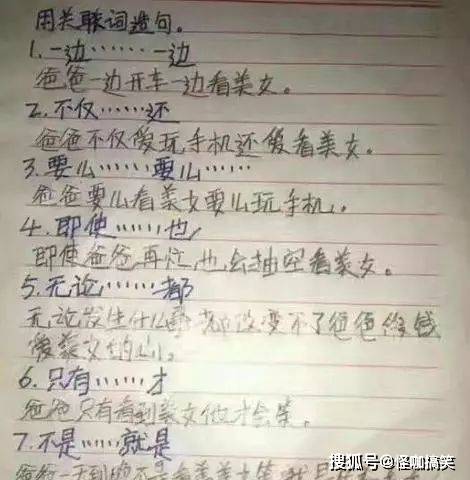 用关联词造句。
1.一边……一边
爸爸一边开车一边看美女。
2.不仅……还
爸爸不仅爱玩手机还爱看美女。
3.要么……要么……
爸爸要么看美女要么玩手机。
4.即使……也
即使爸爸再忙,也会抽空看美女。
5.无论……都
无论发生什么事都改变不了爸爸
爱美女的心。
6.只有……才
爸爸只有看到美女他才会笑。
7.不是……就是
爸爸一天到晚不是看美女
搜狐号@怪咖搞笑